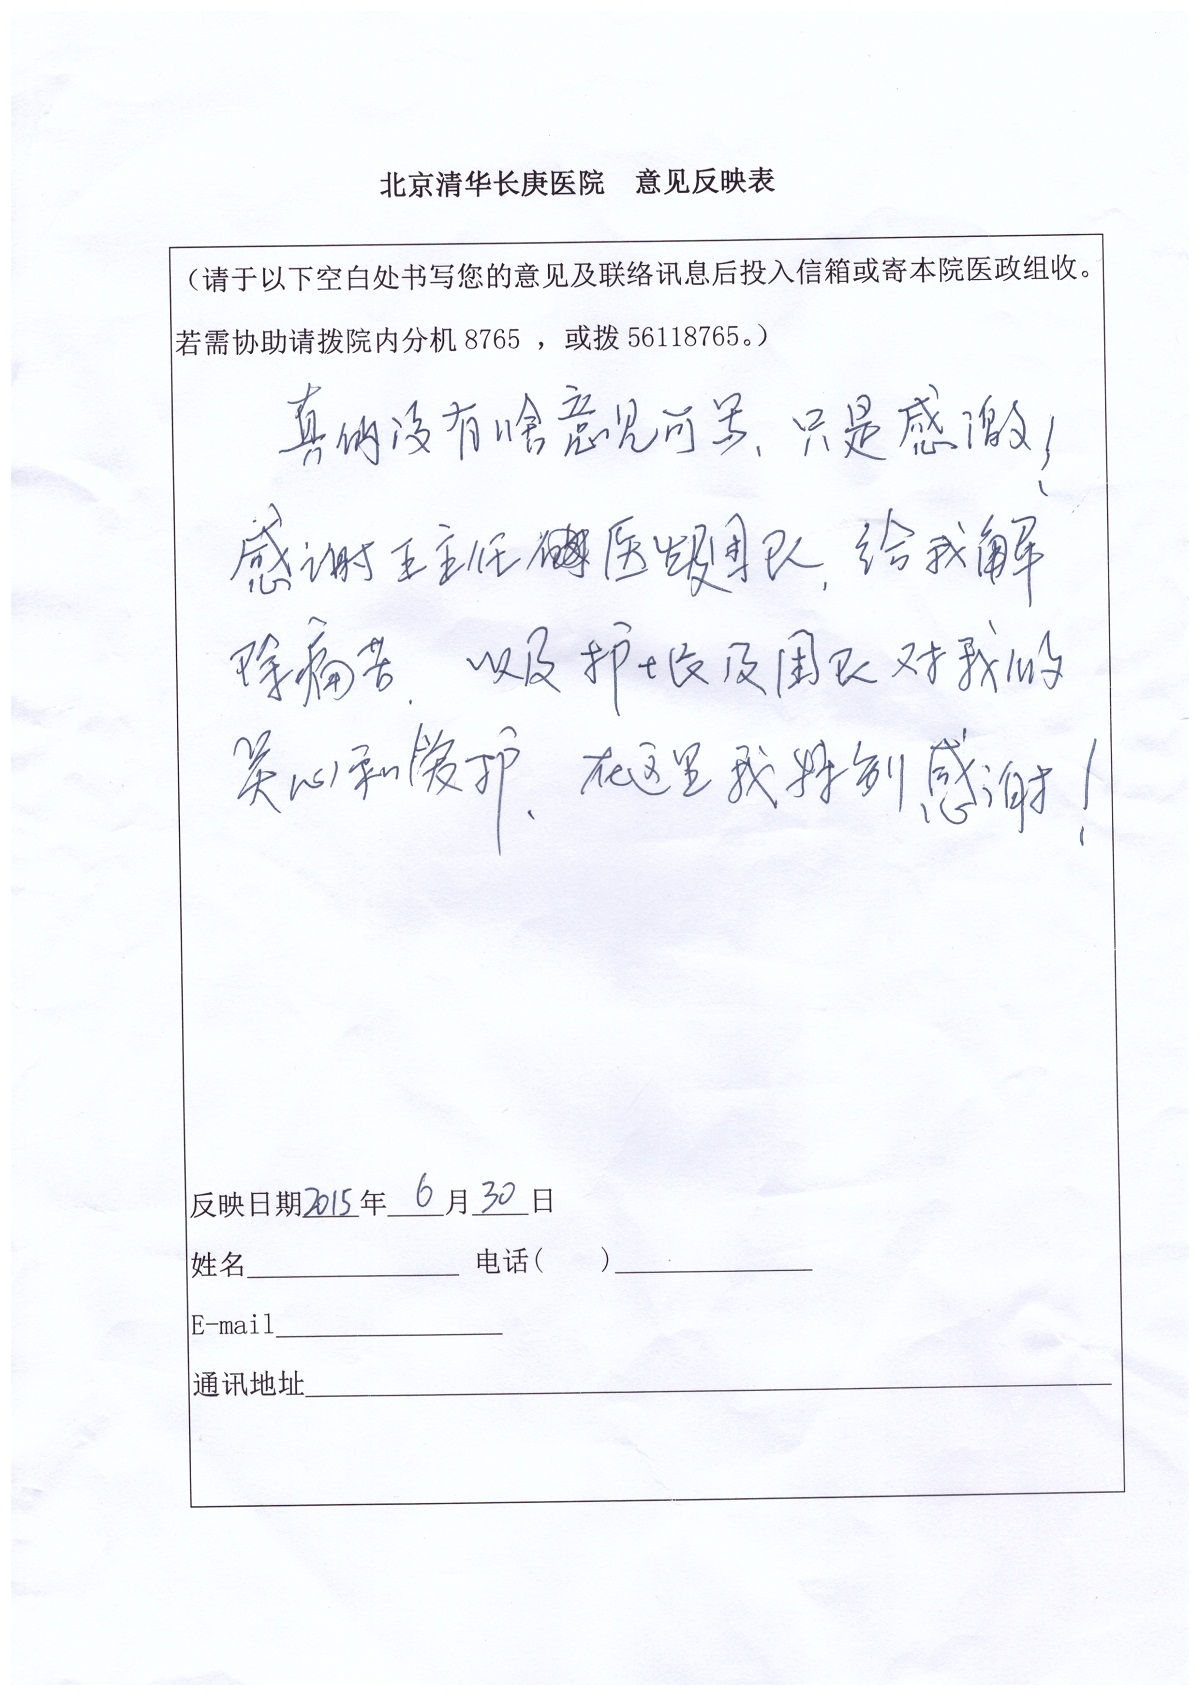 北京清华长庚医院 意见反映表
（请于以下空白处书写您的意见及联络讯息后投入信箱或寄本院医政组收。
若需协助请拨院内分机8765 ，或拨56118765。）
真的没有啥意见可写，只是感激！
感谢王主任 医疗团队，给我解
除痛苦，以及护士长及团队对我的
关心和爱护，在这里我特别感谢！
反映日期2015年 6 月 30 日
姓名 电话( )
E-mail
通讯地址